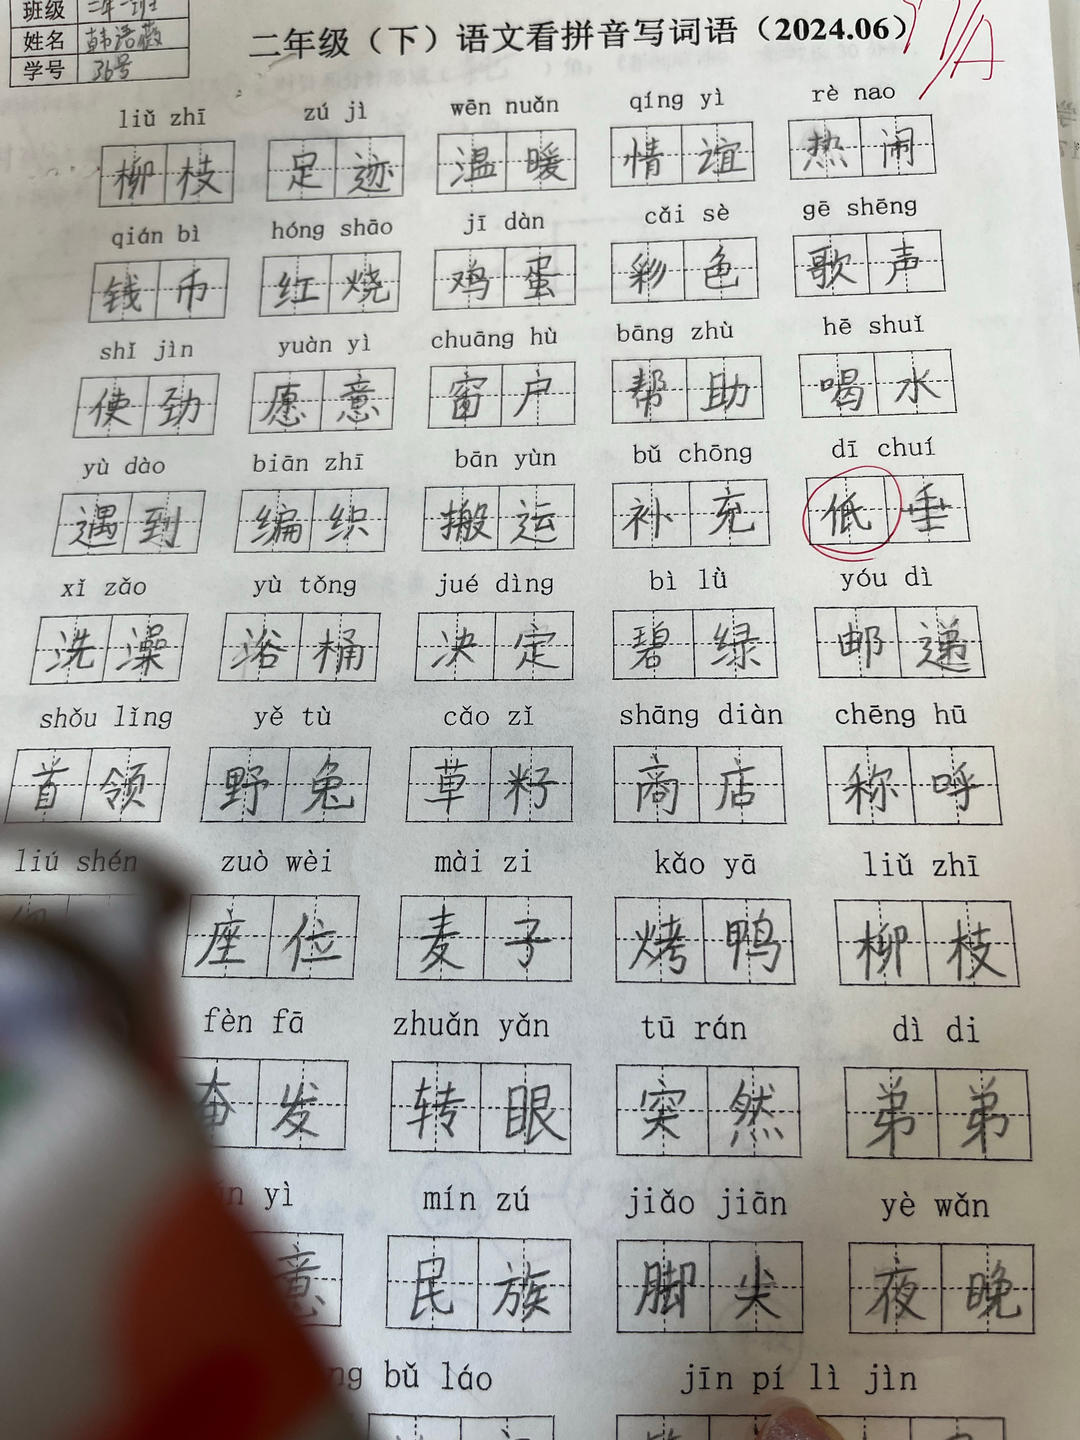 班级 二年一班
姓名
学号 36号
二年级（下）语文看拼音写词语（2024.06）
A
liǔ zhī zú jì wēn nuǎn qíng yì rè nao
柳枝 足迹 温暖 情谊 热闹
qián bì hóng shāo jī dàn cǎi sè gē shēng
钱币 红烧 鸡蛋 彩色 歌声
shǐ jìn yuàn yì chuāng hù bāng zhù hē shuǐ
使劲 愿意 窗户 帮助 喝水
yù dào biān zhī bān yùn bǔ chōng dī chuí
遇到 编织 搬运 补充 低垂
xǐ zǎo yù tǒng jué dìng bì lǜ yóu dì
洗澡 浴桶 决定 碧绿 邮递
shǒu lǐng yě tù cǎo zǐ shāng diàn chēng hū
首领 野兔 草籽 商店 称呼
liú shén zuò wèi mài zi kǎo yā liǔ zhī
座位 麦子 烤鸭 柳枝
fèn fā zhuǎn yǎn tū rán dì di
奋发 转眼 突然 弟弟
yì mín zú jiǎo jiān yè wǎn
意 民族 脚尖 夜晚
bǔ láo jīn pí lì jìn